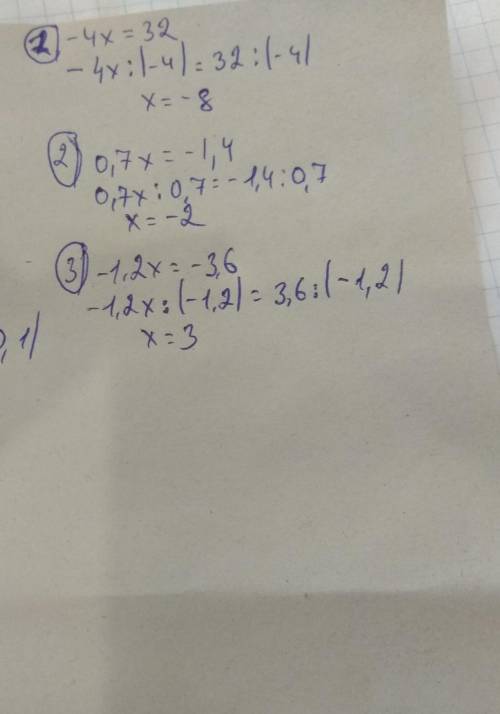 1 -4x = 32
-4x:(-4) = 32:(-4)
x = -8
2 0,7x = -1,4
0,7x:0,7 = -1,4:0,7
x = -2
3 -1,2x = -3,6
-1,2x:(-1,2) = 3,6:(-1,2)
x = 3
,1)